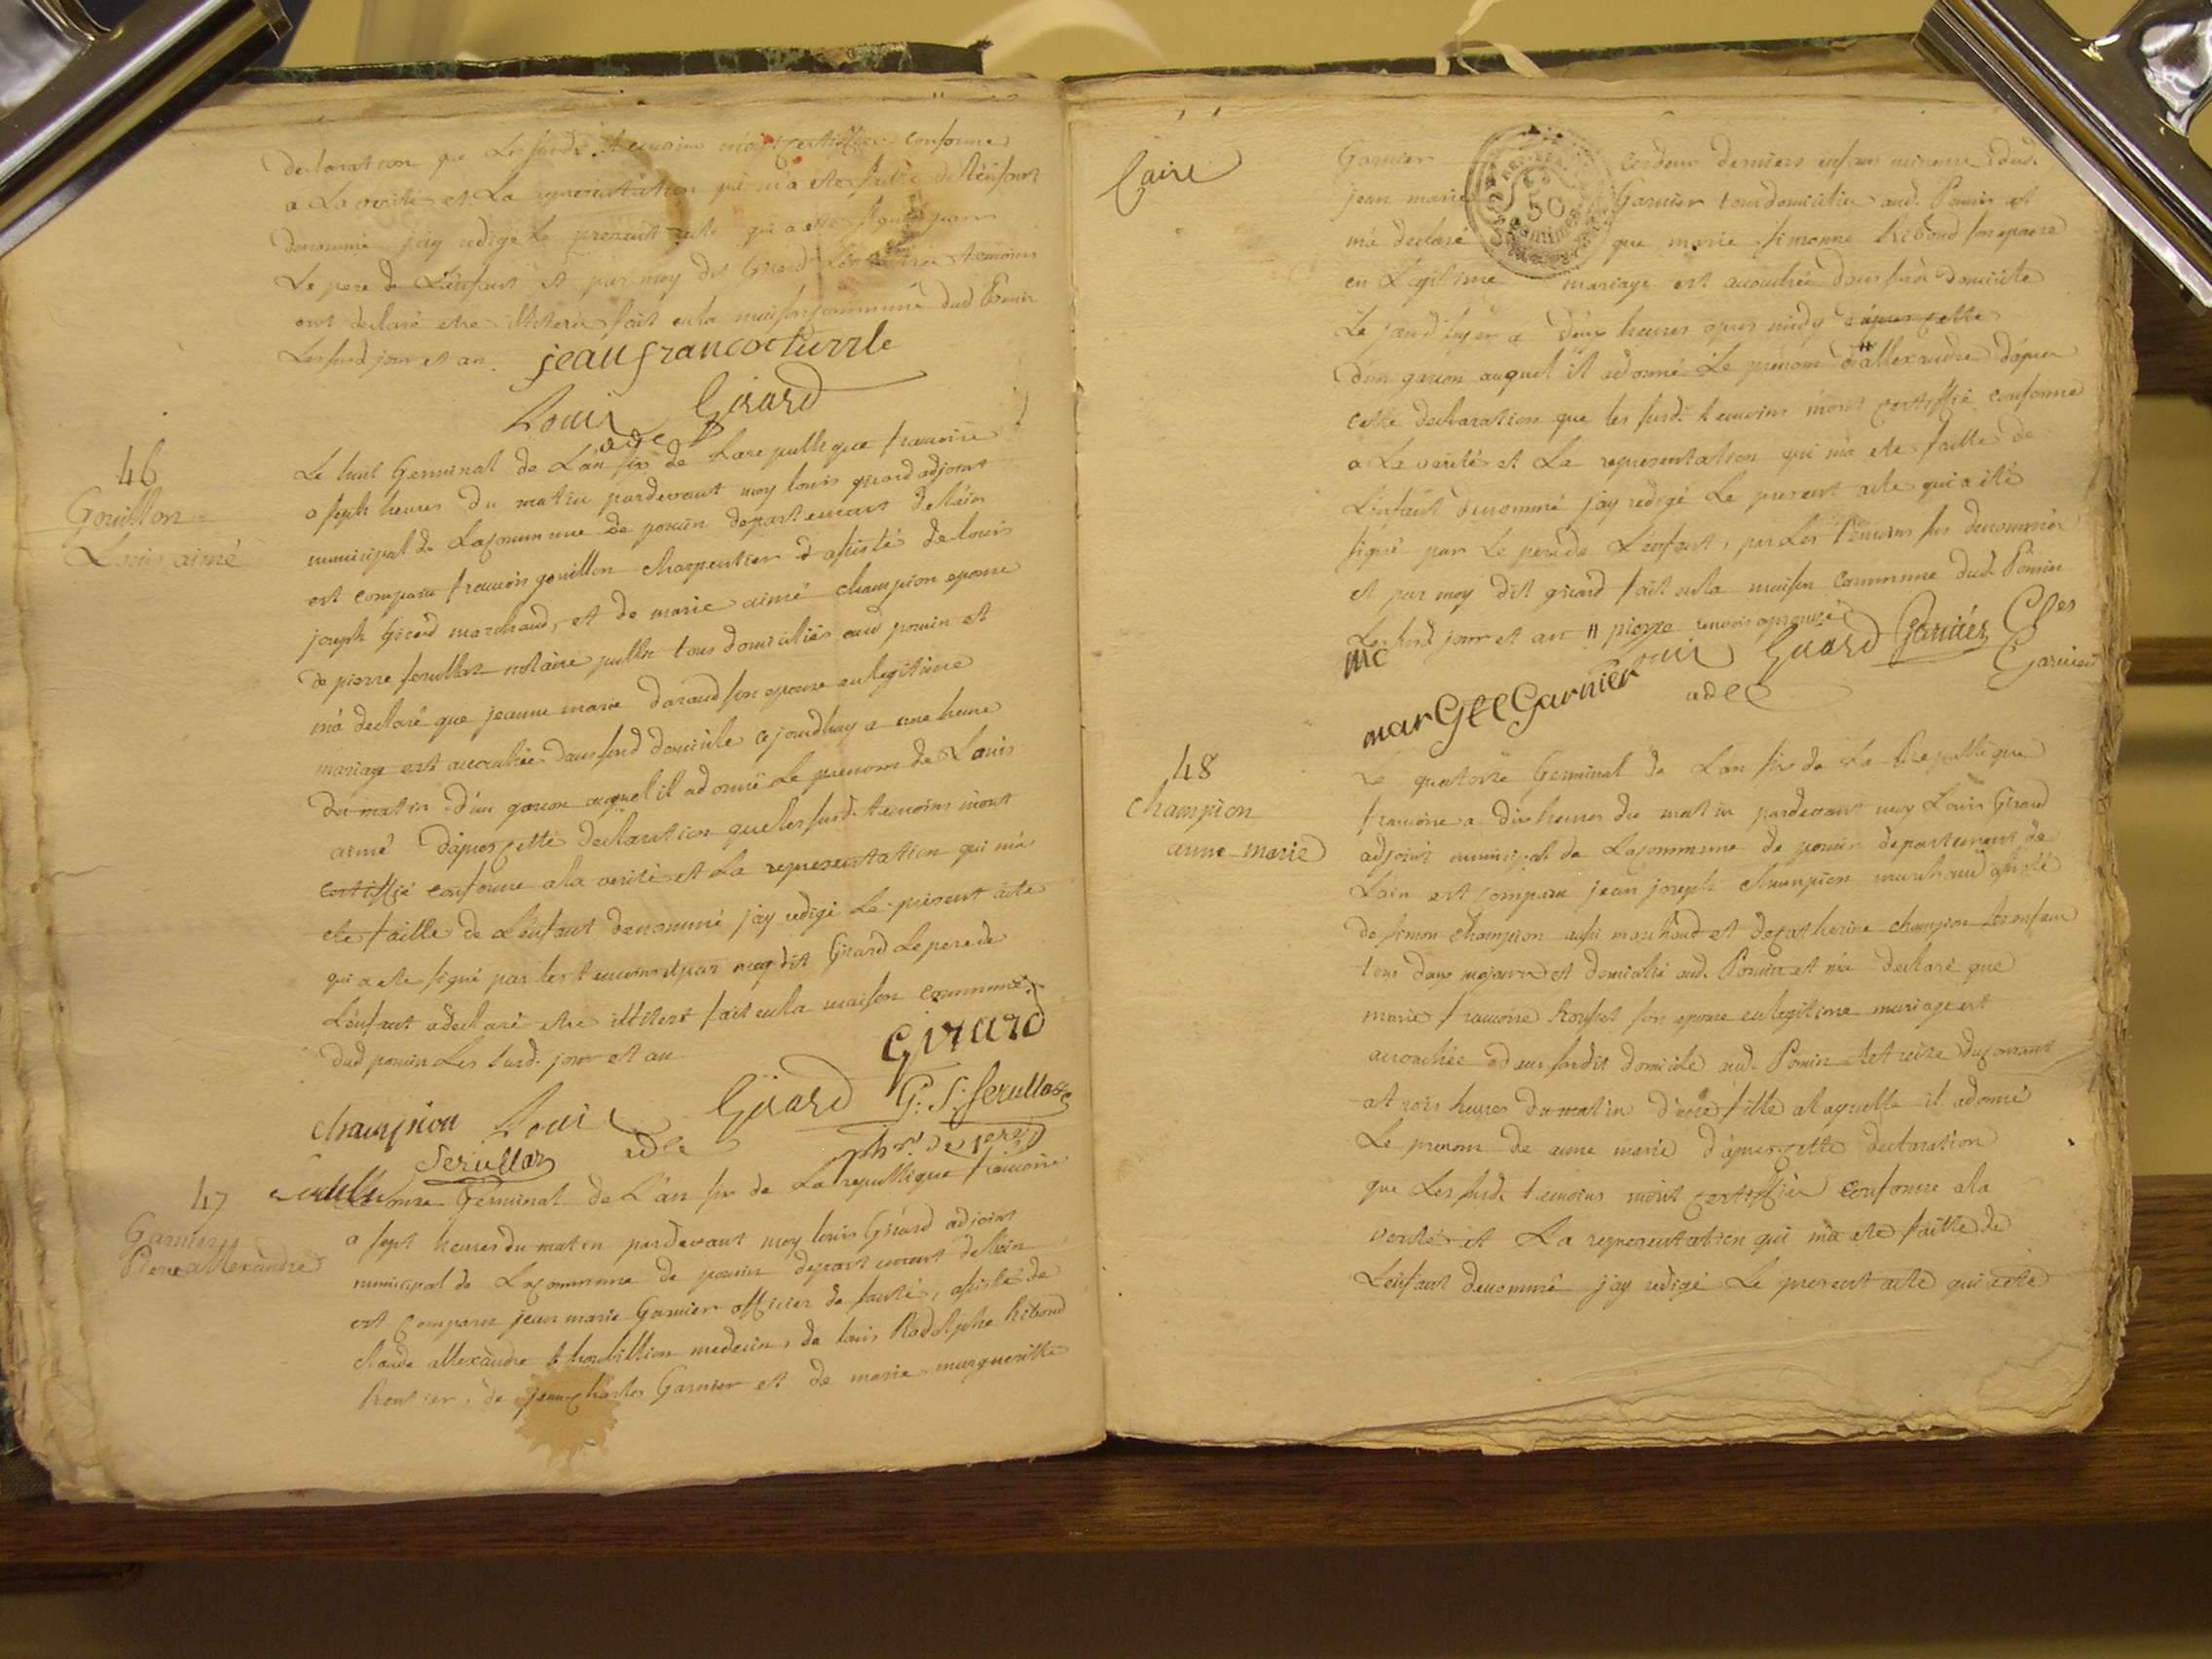 declaration que Les susd. temoins m'ont certiffier conforme
a La verité et La representation qui m'a ete faitte de L'enfant
denommé j'ay redigé Le present acte qui a ette signé par
Le pere de L'enfant et par moy dit Girard Les temoins
ont declaré etre illiteré fait en la maison commune dud. Poncin
Les susd jour et an.
jean francoc turrle
Louis Girard
adt
46
Gouillon
Louis aimé
Le huit Germinal de L'an six de La republique francoise
a sept heures du matin pardevant moy louis girard adjoint
municipal de La commune de poncin departement de l'ain
est comparu francois gouillon charpentier assisté de louis
joseph Girard marchand, et de marie aimé champion epouse
de pierre serullaz notaire public tous domiciliés aud poncin et
m'a declaré que jeanne marie daraud son epouse en legitime
mariage est accouchée dans sond domicile ce jourdhuy a une heure
du matin d'un garcon auquel il a donné Le prenom de Louis
aimé d'apres cette declaration que les susd. temoins m'ont
certiffié conforme a la verité et La representation qui m'a
ete faitte de L'enfant denommé j'ay redigé Le present acte
qui a ete signé par les temoins et par moy dit Girard Le pere de
L'enfant a declaré etre illiteré fait en la maison commune
dud poncin Les susd. jour et an
Girard
champion Louis Girard G. S. serullaz
Serullaz adt
47
Garnier
Pierre allexandre
Le onze Germinal de L'an six de La republique francoise
a sept heures du matin pardevant moy louis Girard adjoint
municipal de La commune de poncin departement de l'ain
est comparu jean marie Garnier officier de santé, assisté de
claude allexandre medecin, de louis Rodolphe Riboud
Rentier, de jean charles Garnier et de marie margueritte
Garnier ces deux derniers enfans mineurs dud.
jean marie Garnier tous domiciliés aud. Poncin et
m'a declaré que marie simonne Riboud son epouse
en Legitime mariage est accouchée dans sond domicile
Le jourd'hyer a deux heures apres midy d'apres cette
d'un garcon auquel il a donné Le prenom d'allexandre d'apres
cette declaration que les susd. temoins m'ont certiffié conforme
a La verité et La representation qui m'a ete faitte de
L'enfant denommé j'ay redigé Le present acte qui a été
signé par Le pere de L'enfant, par Les temoins sus denommés
et par moy dit girard fait en la maison commune dud. Poncin
Les susd jour et an // pierre renvois aprouvé
mc
marGte Garnier Louis Girard Garnier Cles
adt Garnier
48
champion
anne marie
Le quatorze Germinal de L'an six de La Republique
francoise a dix heures du matin pardevant moy Louis Girard
adjoint municipal de La commune de poncin departement de
L'ain est comparu jean joseph champion marchand assisté
de simon champion aussi marchand et de catherine champion
tous deux majeurs et domicilié aud. Poncin et m'a declaré que
marie francoise son epouse en legitime mariage est
accouchée dans sondit domicile aud. Poncin le treize du courant
a trois heures du matin d'une fille a laquelle il a donné
Le prenom de anne marie d'apres cette declaration
que Les susd. temoins m'ont certiffié conforme a la
verité et La representation qui m'a ete faitte de
L'enfant denommé j'ay redigé Le present acte qui a ete